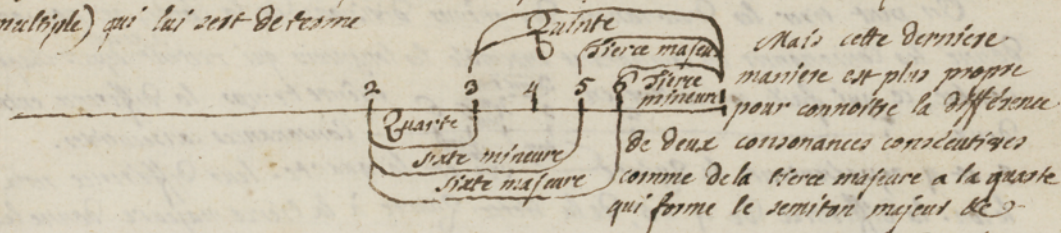 multiple) qui lui sert de terme
Quinte
Tierce majeu
2 3 4 5 6 Tierce
mineure
Quarte
sixte mineure
sixte majeure
Mais cette derniere
maniere est plus propre
pour connoître la différence
de deux consonances consécutives
comme de la tierce majeure a la quarte
qui forme le semiton majeur de